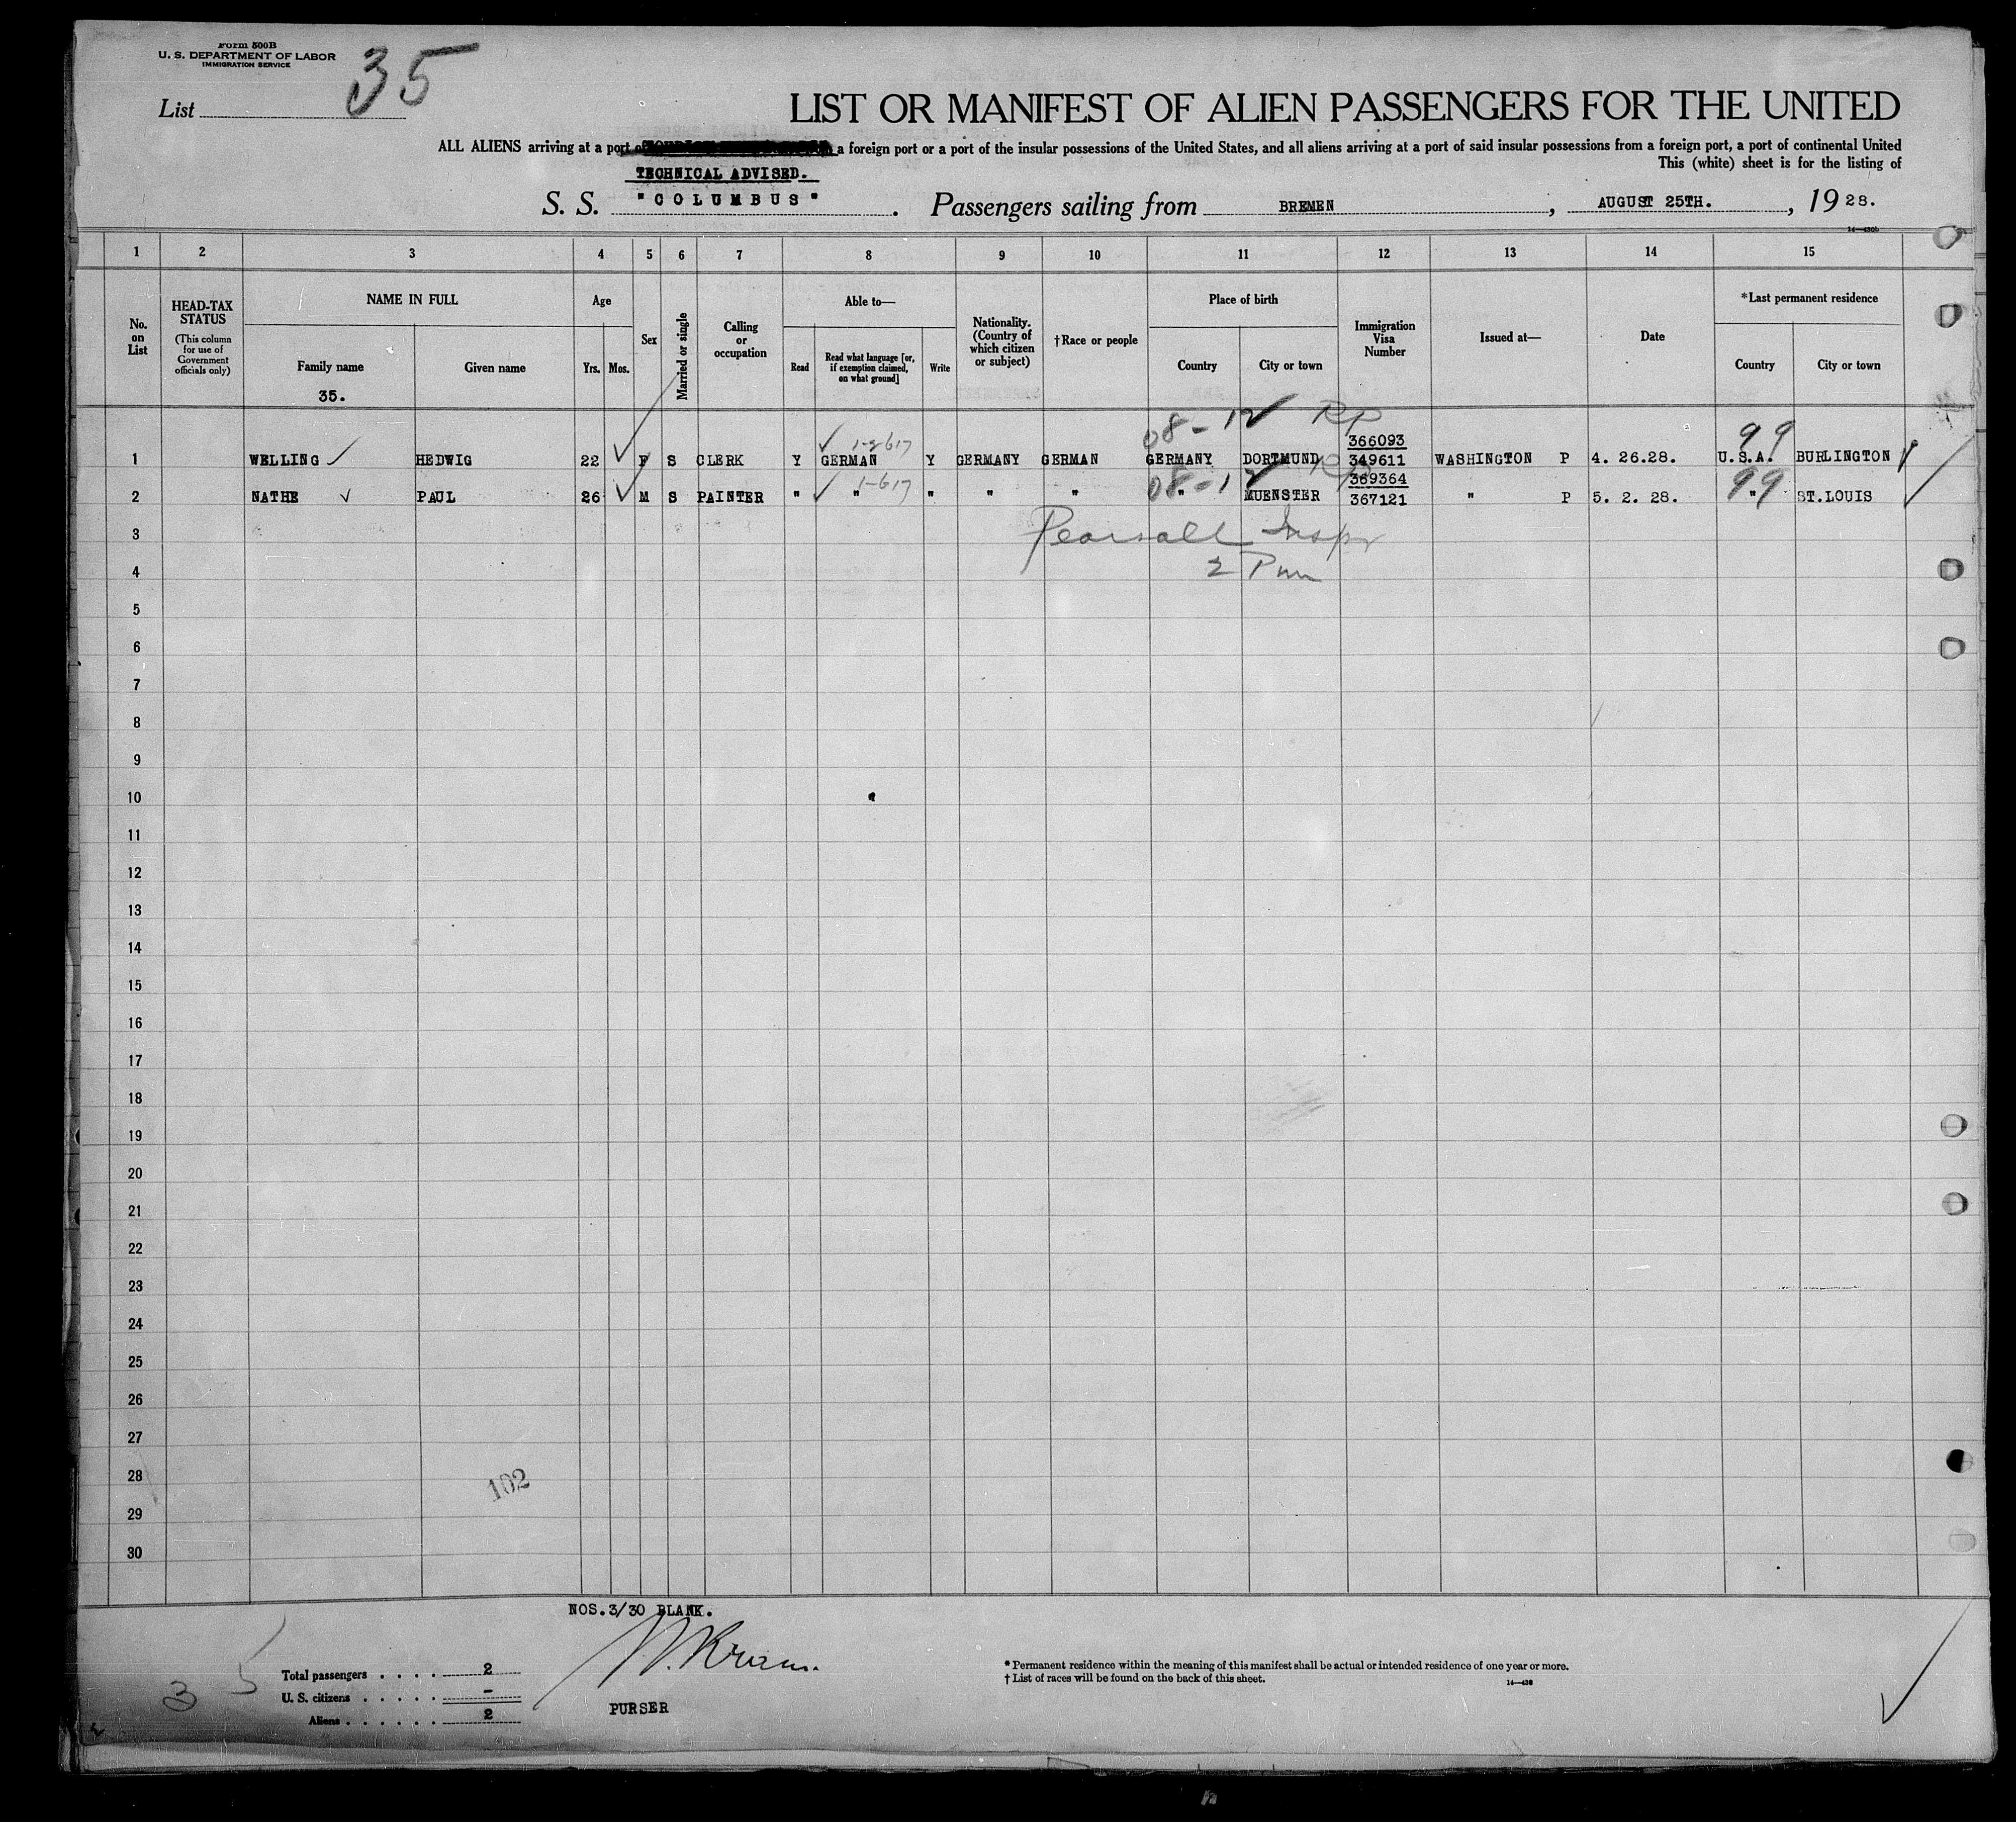 Form 500B
U. S. DEPARTMENT OF LABOR
IMMIGRATION SERVICE
35
List
LIST OR MANIFEST OF ALIEN PASSENGERS FOR THE UNITED
ALL ALIENS arriving at a port of a foreign port or a port of the insular possessions of the United States, and all aliens arriving at a port of said insular possessions from a foreign port, a port of continental United
This (white) sheet is for the listing of
TECHNICAL ADVISED.
S. S. "COLUMBUS". Passengers sailing from BREMEN, AUGUST 25TH., 1928.
14—430b
1 2 3 4 5 6 7 8 9 10 11 12 13 14 15
No. on List
HEAD-TAX STATUS
(This column for use of Government officials only)
NAME IN FULL
Family name
Given name
35.
Age
Yrs. Mos.
Sex
Married or single
Calling or occupation
Able to—
Read
Read what language [or, if exemption claimed, on what ground]
Write
Nationality. (Country of which citizen or subject)
†Race or people
Place of birth
Country
City or town
Immigration Visa Number
Issued at—
Date
*Last permanent residence
Country
City or town
08-12 RP
99
366093
1 WELLING HEDWIG 22 F S CLERK Y GERMAN Y GERMANY GERMAN GERMANY DORTMUND 349611 WASHINGTON P 4. 26.28. U.S.A. BURLINGTON
1-617
08-1
369364
99
2 NATHE PAUL 26 M S PAINTER " " " " " " MUENSTER 367121 " P 5. 2. 28. " ST.LOUIS
3 Pearsall Inspr
4 2 Pm
5
6
7
8
9
10
11
12
13
14
15
16
17
18
19
20
21
22
23
24
25
26
27
28
102
29
30
NOS.3/30 BLANK.
35
Total passengers . . . . 2
U. S. citizens . . . . . -
Aliens . . . . . . 2
PURSER
* Permanent residence within the meaning of this manifest shall be actual or intended residence of one year or more.
† List of races will be found on the back of this sheet.
14—430